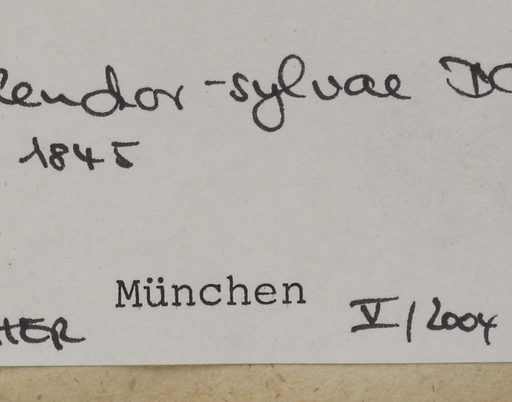 lendor-sylvae DC
1845
München
HER V/2004